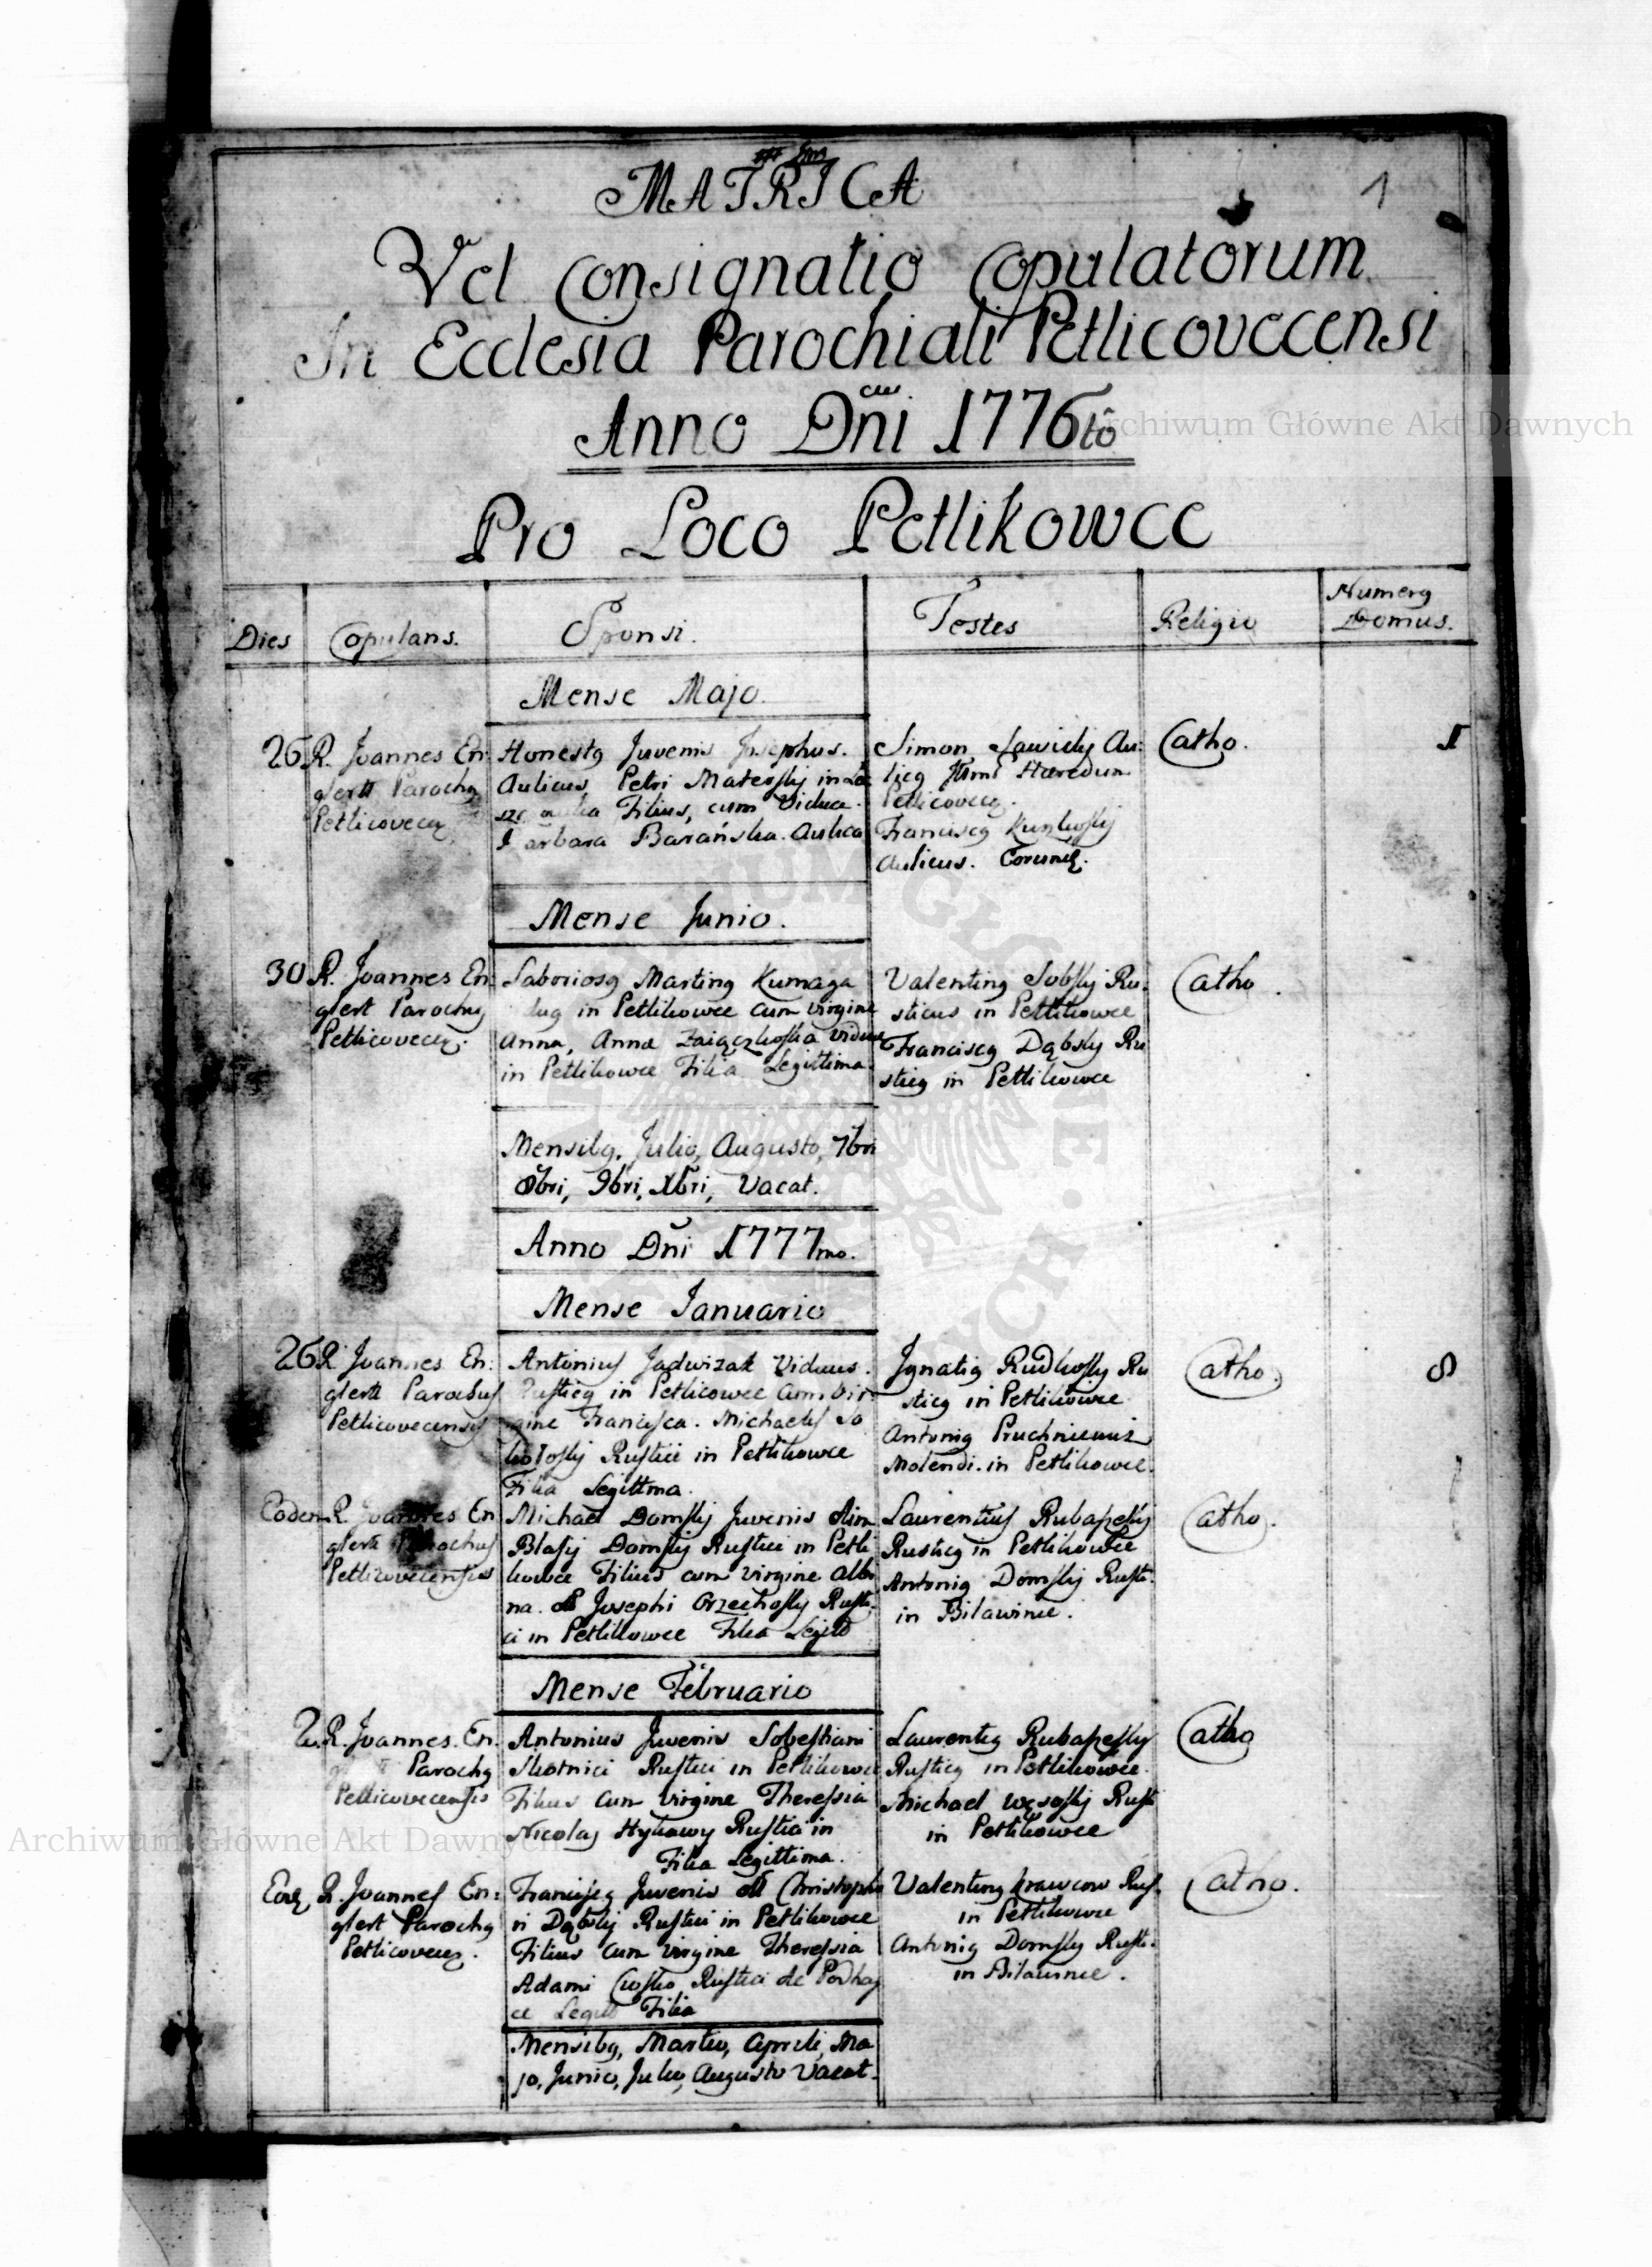 MATRICA
1
Vel Consignatio Copulatorum
In Ecclesia Parochiali Petlicoveccensi
Anno Dñi 1776tô
Pro Loco Petlikowce
Dies
Copulans.
Sponsi.
Testes
Religio
Numerꝯ
Domus.
Mense Majo.
26
R. Joannes En:
glertt Parochꝯ
Petlicovecen
Honestꝯ Juvenis Josephus.
Aulicus, Petri Mateyskj in
Filius, cum Vidua.
Barbara Barańska. Aulica
Simon Au:
licꝯ Hæredum
Petlicovecen.
Franciscꝯ
Aulicus.
Catho.
1
Mense Junio.
30
R. Joannes En:
glert Parochꝯ
Petlicovecen.
Laboriosꝯ Martinꝯ Kumaga
in Petlikowce cum virgine
Anna, Annæ Zaiączkoska viduæ
in Petlikowce Filia Legittima
Valentinꝯ Sobskj Ru:
sticus in Petlikowce
Franciscꝯ Dąbskj Ru
sticꝯ in Petlikowce
Catho.
Mensibꝯ. Julio, Augusto, 7bri
8bri, 9bri, Xbri, Vacat.
Anno Dñi 1777mo.
Mense Januario
26
R. Joannes En:
glertt Parochus
Petlicovecensis
Antonius Jadwizak Viduus.
Rusticꝯ in Petlicowce cum vir:
gine Francisca. Michaelis So
kołoskj Rustici in Petlikowce
Filia Legittma.
Ignatiꝯ Rudkoskj Ru
sticꝯ in Petlikowce
Antoniꝯ Pruchniewicz
Molendi. in Petlikowce.
Catho.
8
Eodem
R. Joannes En
glertt Parochus
Petlicovecensis
Michael Domskj Juvenis
Blasij Domskj Rustici in Petli
kowce Filius cum virgine Albi
na. Josephi Orzechoskj Rusti
ci in Petlikowce Filia Legitt
Laurentius Rubaszeskj
Rusticꝯ in Petlikowce
Antoniꝯ Domskj Rusti.
in Bilawince.
Catho.
Mense Februario
2.
R. Joannes. En.
Parochꝯ
Petlicovecensis
Antonius Juvenis Sobestiani
Skotnici Rustici in Petlikowce
Filius cum virgine Theressia
Nicolaj Hykawy Rustici in
Filia Legittima.
Laurentiꝯ Rubaszeskj
Rusticꝯ in Petlikowce.
Michael Węsoskj Rusti
in Petlikowce
Catho
R. Joannes En:
glert Parochꝯ
Petlicovecen.
Franciscꝯ Juvenis Christopho
ri Dąbskj Rustici in Petlikowce
Filius cum virgine Theressia
Adami Rustici de Podhaj
ce Legitt Filia
Valentinꝯ Krawcow Rus.
in Petlikowce
Antoniꝯ Domskj Rusti.
in Bilawince.
Catho.
Mensibꝯ, Martio, Aprili, Ma
jo, Junio, Julio, Augusto Vacat.
Archiwum Główne Akt Dawnych
Archiwum Główne Akt Dawnych